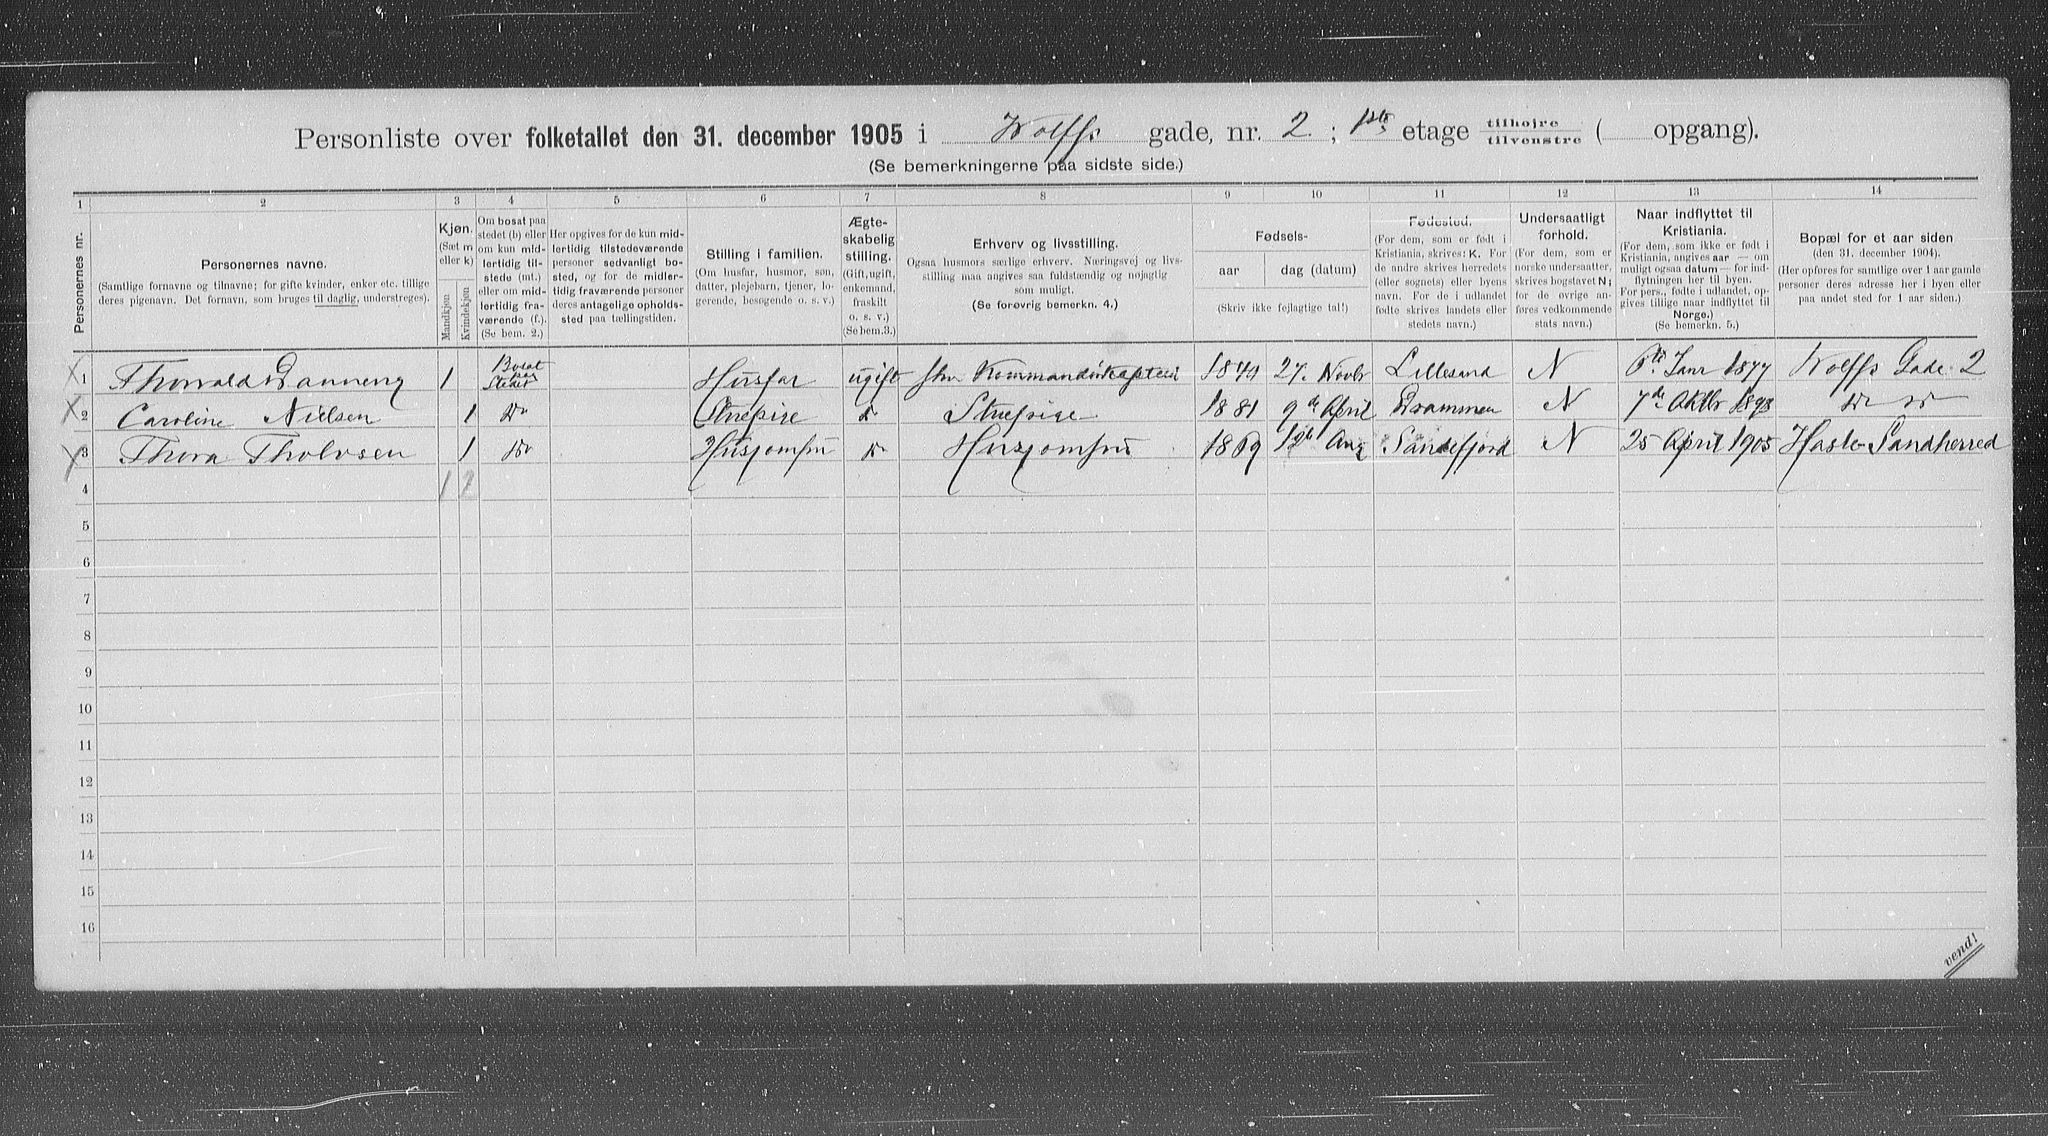 Personliste over folketallet den 31. december 1905 i Wolffs gade, nr. 2 ; 1ste etage tilhøjre tilvenstre ( opgang).
(Se bemerkningerne paa sidste side.)
1 2 3 4 5 6 7 8 9 10 11 12 13 14
Personernes nr.
Personernes navne.
(Samtlige fornavne og tilnavne; for gifte kvinder, enker etc. tillige
deres pigenavn. Det fornavn, som bruges til daglig, understreges).
Kjøn.
(Sæt m
eller k)
Mandkjøn
Kvindekjøn
Om bosat paa
stedet (b) eller
om kun mid-
lertidig til-
stede (mt.)
eller om mid-
lertidig fra-
værende (f.).
(Se bem. 2.)
Her opgives for de kun mid-
lertidig tilstedeværende
personer sedvanligt bo-
sted, og for de midler-
tidig fraværende personer
deres antagelige opholds-
sted paa tællingstiden.
Stilling i familien.
(Om husfar, husmor, søn,
datter, plejebarn, tjener, lo-
gerende, besøgende o. s. v.)
Ægte-
skabelig
stilling.
(Gift, ugift,
enkemand,
fraskilt
o. s. v.)
(Se bem.3.)
Erhverv og livsstilling.
Ogsaa husmors særlige erhverv. Næringsvej og livs-
stilling maa angives saa fuldstændig og nøjagtig
som muligt.
(Se forøvrig bemerkn. 4.)
Fødsels-
aar dag (datum)
(Skriv ikke fejlagtige tal!)
Fødested.
(For dem, som er født i
Kristiania, skrives: K. For
de andre skrives herredets
(eller sognets) eller byens
navn. For de i udlandet
fødte skrives landets eller
stedets navn.)
Undersaatligt
forhold.
(For dem, der er
norske undersaatter,
skrives bogstavet N;
for de øvrige an-
føres vedkommende
stats navn.)
Naar indflyttet til
Kristiania.
(For dem, som ikke er født i
Kristiania, angives aar — om
muligt ogsaa datum — for ind-
flytningen her til byen.
For pers., fødte i udlandet, op-
gives tillige naar indflyttet til
Norge.)
(Se bemerkn. 5.)
Bopæl for et aar siden
(den 31. december 1904).
(Her opføres for samtlige over 1 aar gamle
personer deres adresse her i byen eller
paa andet sted for 1 aar siden.)
1 Thorvald Danneng 1 Bosat paa Stedet Husfar ugift Kommandørkaptein 27. Novbr Lillesand N 6te Janr 1877 Wolffs Gade 2
2 Caroline Nielsen 1 Do Stuepige Do Stuepige 1881 9de April Drammen N 7de Oktbr 1898 Do Do
3 Thora Tholvsen 1 Do Husjomfru Do Husjomfru 1869 Aug Sandefjord N 25 April 1905 Hasle Sandherred
4 1 2
5
6
7
8
9
10
11
12
13
14
15
16
vend!